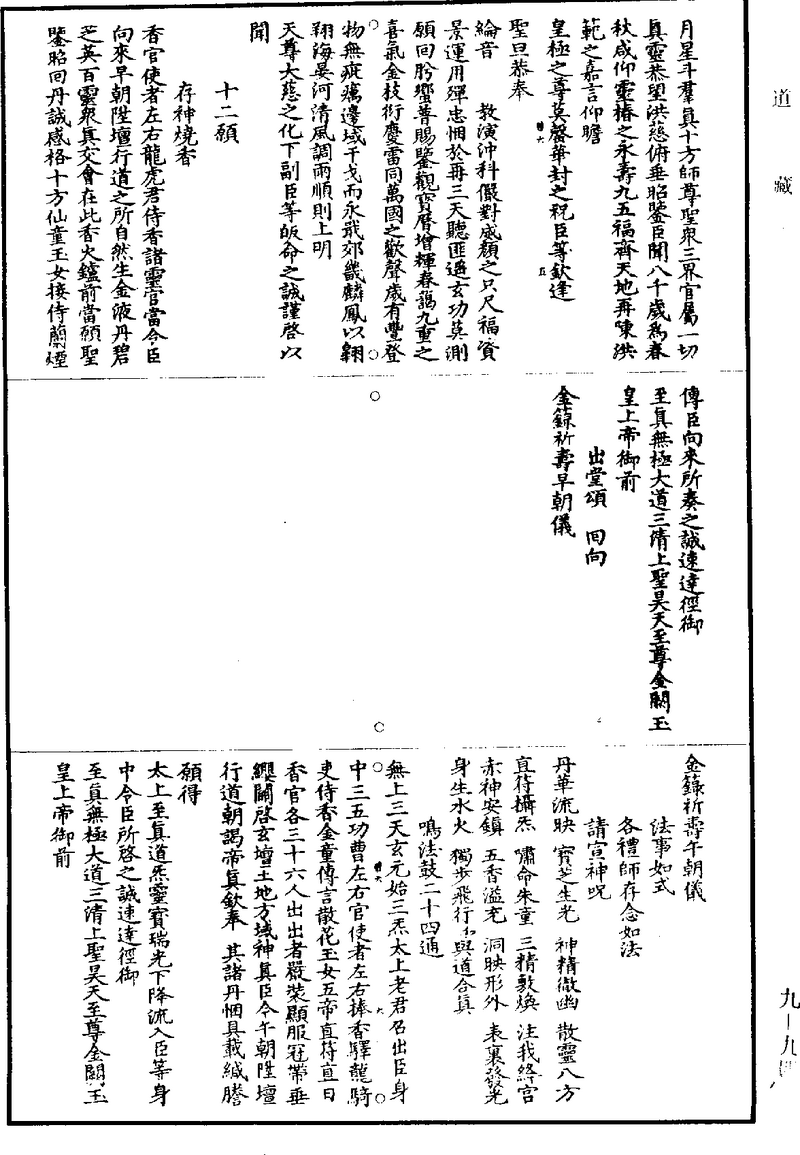 道藏
月星斗羣真十方師尊聖衆三界官屬一切
真靈恭望洪慈俯垂昭鑒臣聞八千歲爲春
秋咸仰靈椿之永壽九五福齊天地再陳洪
範之嘉言仰瞻
皇極之尊莫罄華封之祝臣等欽逢
聖旦恭奉
綸音 教演沖科儼對威顏之只尺福資
景運用殫忠悃於再三天聽匪遥玄功莫測
願回肹蠁普賜鑒觀寶曆增輝春藹九重之
喜氣金枝衍慶雷同萬國之歡聲歲有豐登
物無疵癘邊域干戈而永戢郊畿麟鳳以翱
翔海晏河清風調雨順則上明
天尊大慈之化下副臣等皈命之誠謹啓以
聞
十二願
存神燒香
香官使者左右龍虎君侍香諸靈官當令臣
向來早朝陞壇行道之所自然生金液丹碧
芝英百靈衆真交會在此香火鑪前當願聖
鑒昭回丹誠感格十方仙童玉女接侍蘭煙
傳臣向來所奏之誠速達徑御
至真無極大道三清上聖昊天至尊金闕玉
皇上帝御前
出堂頌 回向
金籙祈壽早朝儀
金籙祈壽午朝儀
法事如式
各禮師存念如法
請宣神呪
丹華流映 寶芝生光 神精徹幽 散靈八方
直符攝炁 嘯命朱童 三精敷煥 注我絳宮
赤神安鎮 五香溢充 洞映形外 表裏發光
身生水火 獨步飛行 與道合真
鳴法鼓二十四通
無上三天玄元始三炁太上老君召出臣身
中三五功曹左右官使者左右捧香驛龍騎
吏侍香金童傳言散花玉女五帝直符直日
香官各三十六人出出者嚴裝顯服冠帶垂
纓關啓玄壇土地方域神真臣今午朝陞壇
行道朝謁帝真欽奉 其諸丹悃具載緘謄
願得
太上至真道炁靈寶瑞光下降流入臣等身
中令臣所啓之誠速達徑御
至真無極大道三清上聖昊天至尊金闕玉
皇上帝御前